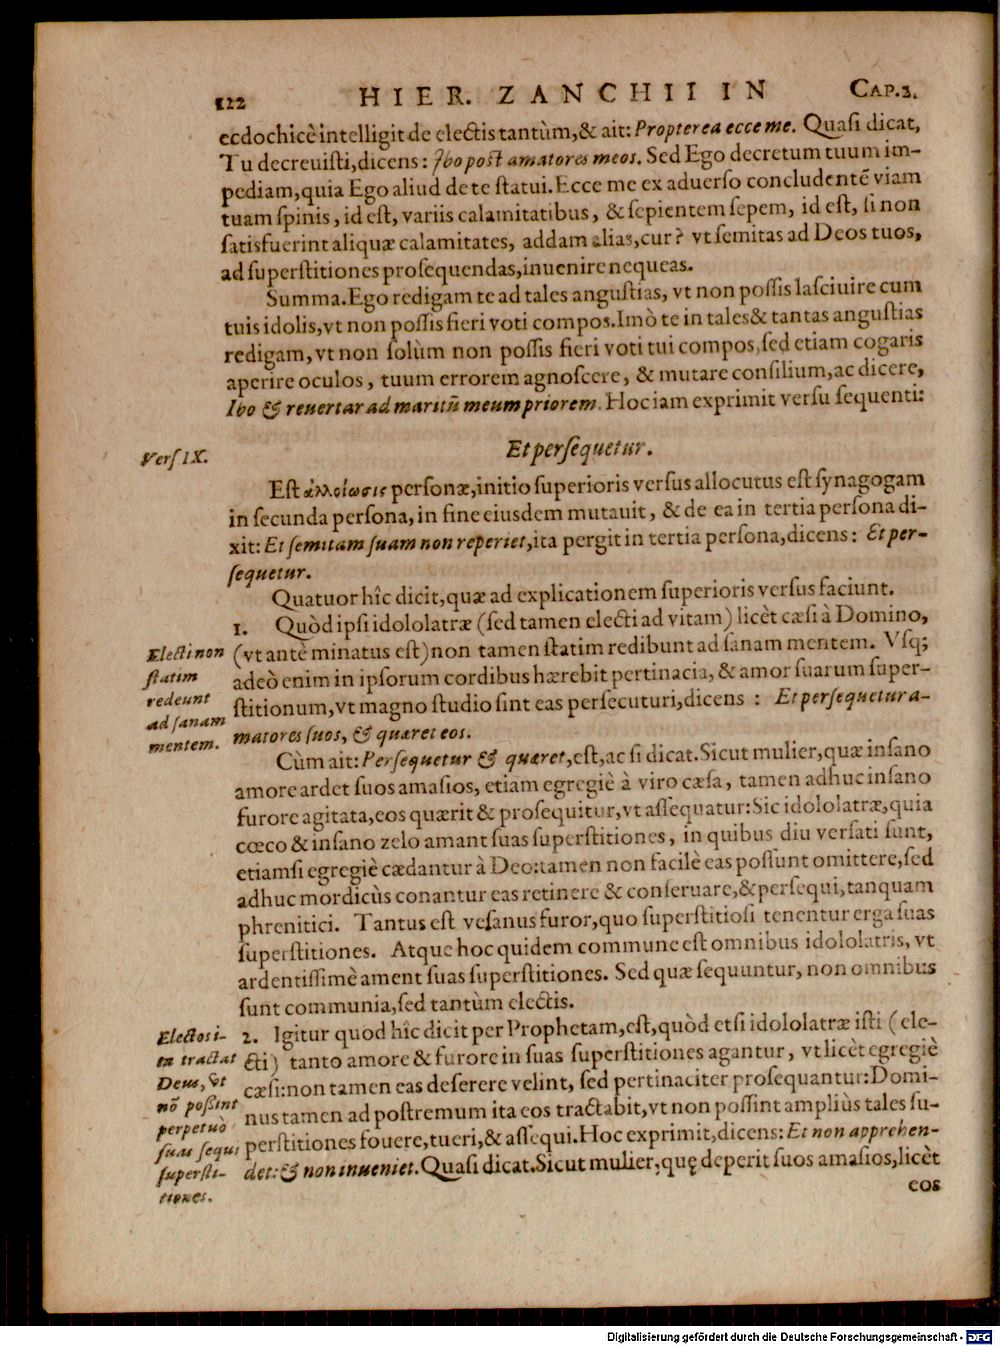 122 HIER. ZANCHII IN CAP.2.
ecdochicè intelligit de electis tantùm,& ait: Propterea ecce me. Quasi dicat,
Tu decreuisti,dicens: Ibo post amatores meos. Sed Ego decretum tuum im-
pediam,quia Ego aliud de te statui. Ecce me ex aduerso concludentẽ viam
tuam spinis, id est, variis calamitatibus, & sepientem sepem, id est, si non
satisfuerint aliquæ calamitates, addam alias,cur? vt semitas ad Deos tuos,
ad superstitiones prosequendas,inuenire nequeas.
Summa. Ego redigam te ad tales angustias, vt non possis lasciuire cum
tuis idolis,vt non possis fieri voti compos. Imò te in tales & tantas angustias
redigam, vt non solùm non possis fieri voti tui compos,sed etiam cogaris
aperire oculos, tuum errorem agnoscere, & mutare consilium,ac dicere,
Ibo & reuertar ad maritũ meum priorem. Hoc iam exprimit versu sequenti:
Vers IX.
Et persequetur.
Est ἀλλοίωσις personæ,initio superioris versus allocutus est synagogam
in secunda persona,in fine eiusdem mutauit, & de ea in tertia persona di-
xit: Et semitam suam non reperiet,ita pergit in tertia persona,dicens: Et per-
sequetur.
Quatuor hîc dicit,quæ ad explicationem superioris versus faciunt.
1. Quòd ipsi idololatræ (sed tamen electi ad vitam) licèt cæsi à Domino,
(vt antè minatus est) non tamen statim redibunt ad sanam mentem. Vsq;
adeò enim in ipsorum cordibus hærebit pertinacia,& amor suarum super-
stitionum,vt magno studio sint eas persecuturi,dicens: Et persequetur a-
matores suos, & quæret eos.
Electi non
statim
redeunt
ad sanam
mentem.
Cùm ait: Persequetur & quæret,est,ac si dicat. Sicut mulier,quæ insano
amore ardet suos amasios, etiam egregiè à viro cæsa, tamen adhuc insano
furore agitata,eos quærit & prosequitur,vt assequatur: Sic idololatræ,quia
cœco & insano zelo amant suas superstitiones, in quibus diu versati sunt,
etiamsi egregiè cædantur à Deo:tamen non facilè eas possunt omittere,sed
adhuc mordicùs conantur eas retinere & conseruare,& persequi,tanquam
phrenitici. Tantus est vesanus furor,quo superstitiosi tenentur erga suas
superstitiones. Atque hoc quidem commune est omnibus idololatris, vt
ardentissimè ament suas superstitiones. Sed quæ sequuntur, non omnibus
sunt communia,sed tantùm electis.
2. Igitur quod hîc dicit per Prophetam,est,quòd etsi idololatræ isti (ele-
cti) tanto amore & furore in suas superstitiones agantur, vt licèt egregiè
cæsi:non tamen eas deserere velint, sed pertinaciter prosequantur:Domi-
nus tamen ad postremum ita eos tractabit,vt non possint ampliùs tales su-
perstitiones fouere,tueri,& assequi. Hoc exprimit,dicens: Et non apprehen-
det: & non inueniet. Quasi dicat. Sicut mulier,quę deperit suos amasios,licèt
Electos i-
ta tractat
Deus, vt
nõ possint
perpetuò
suas sequi
supersti-
tiones.
eos
Digitalisierung gefördert durch die Deutsche Forschungsgemeinschaft - DFG